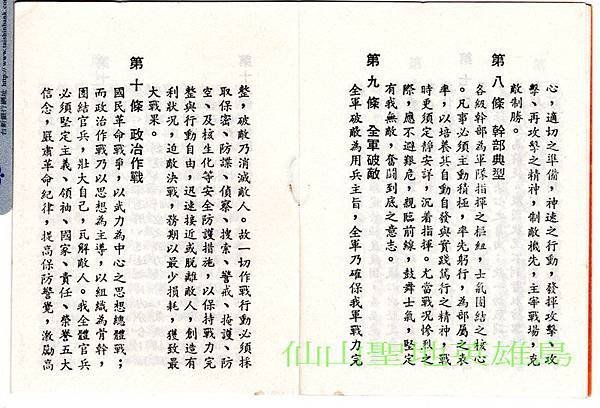 心，適切之準備，神速之行動，發揮攻擊、攻
擊、再攻擊之精神，制敵機先，主宰戰場，克
敵制勝。
第八條　幹部典型
各級幹部為軍隊指揮之樞紐，士氣團結之核心
。凡事必須主動積極，率先躬行，為部屬之表
率，以培養其自動自發與實踐篤行之精神，戰
時更須定靜安詳，沉着指揮。尤當戰况慘烈之
際，應不避艱危，親臨前線，鼓舞士氣，堅定
有我無敵，奮鬪到底之意志。
第九條　全軍破敵
全軍破敵為用兵主旨，全軍乃確保我軍戰力完
整，破敵乃消滅敵人。故一切作戰行動必須採
取保密、防諜、偵察、搜索、警戒、掩護、防
空、及核生化等安全防護措施，以保持戰力完
整與行動自由，迅速接近或脫離敵人，創造有
利狀况，迫敵決戰，務期以最少損耗，獲致最
大戰果。
第十條　政治作戰
國民革命戰爭，以武力為中心之思想總體戰；
而政治作戰乃以思想為主導，以組織為骨幹，
團結官兵，壯大自己，瓦解敵人。我全體官兵
必須堅定主義、領袖、國家、責任、榮譽五大
信念，嚴肅革命紀律，提高保防警覺，激勵高
仙山聖地英雄島